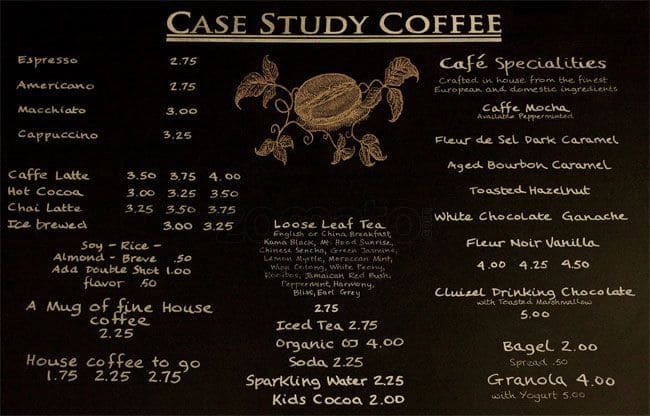 CASE STUDY COFFEE
Espresso 2.75
Americano 2.75
Macchiato 3.00
Cappuccino 3.25
Caffe Latte 3.50 3.75 4.00
Hot Cocoa 3.00 3.25 3.50
Chai Latte 3.25 3.50 3.75
Ice brewed 3.00 3.25
Soy - Rice -
Almond - Breve .50
Add Double Shot 1.00
flavor .50
A Mug of fine House
coffee
2.25
House coffee to go
1.75 2.25 2.75
Loose Leaf Tea
English or China Breakfast,
Kama Black, Mt. Hood Sunrise,
Chinese Sencha, Green Jasmine,
Lemon Myrtle, Moroccan Mint,
Wuyi Oolong, White Peony,
Rooibos, Jamaican Red Bush,
Peppermint, Harmony,
Bliss, Earl Grey
2.75
Iced Tea 2.75
Organic OJ 4.00
Soda 2.25
Sparkling Water 2.25
Kids Cocoa 2.00
Café Specialities
Crafted in house from the finest
European and domestic ingredients
Caffe Mocha
Available Pepperminted
Fleur de Sel Dark Caramel
Aged Bourbon Caramel
Toasted Hazelnut
White Chocolate Ganache
Fleur Noir Vanilla
4.00 4.25 4.50
Cluizel Drinking Chocolate
with Toasted Marshmallow
5.00
Bagel 2.00
Spread .50
Granola 4.00
with Yogurt 5.00